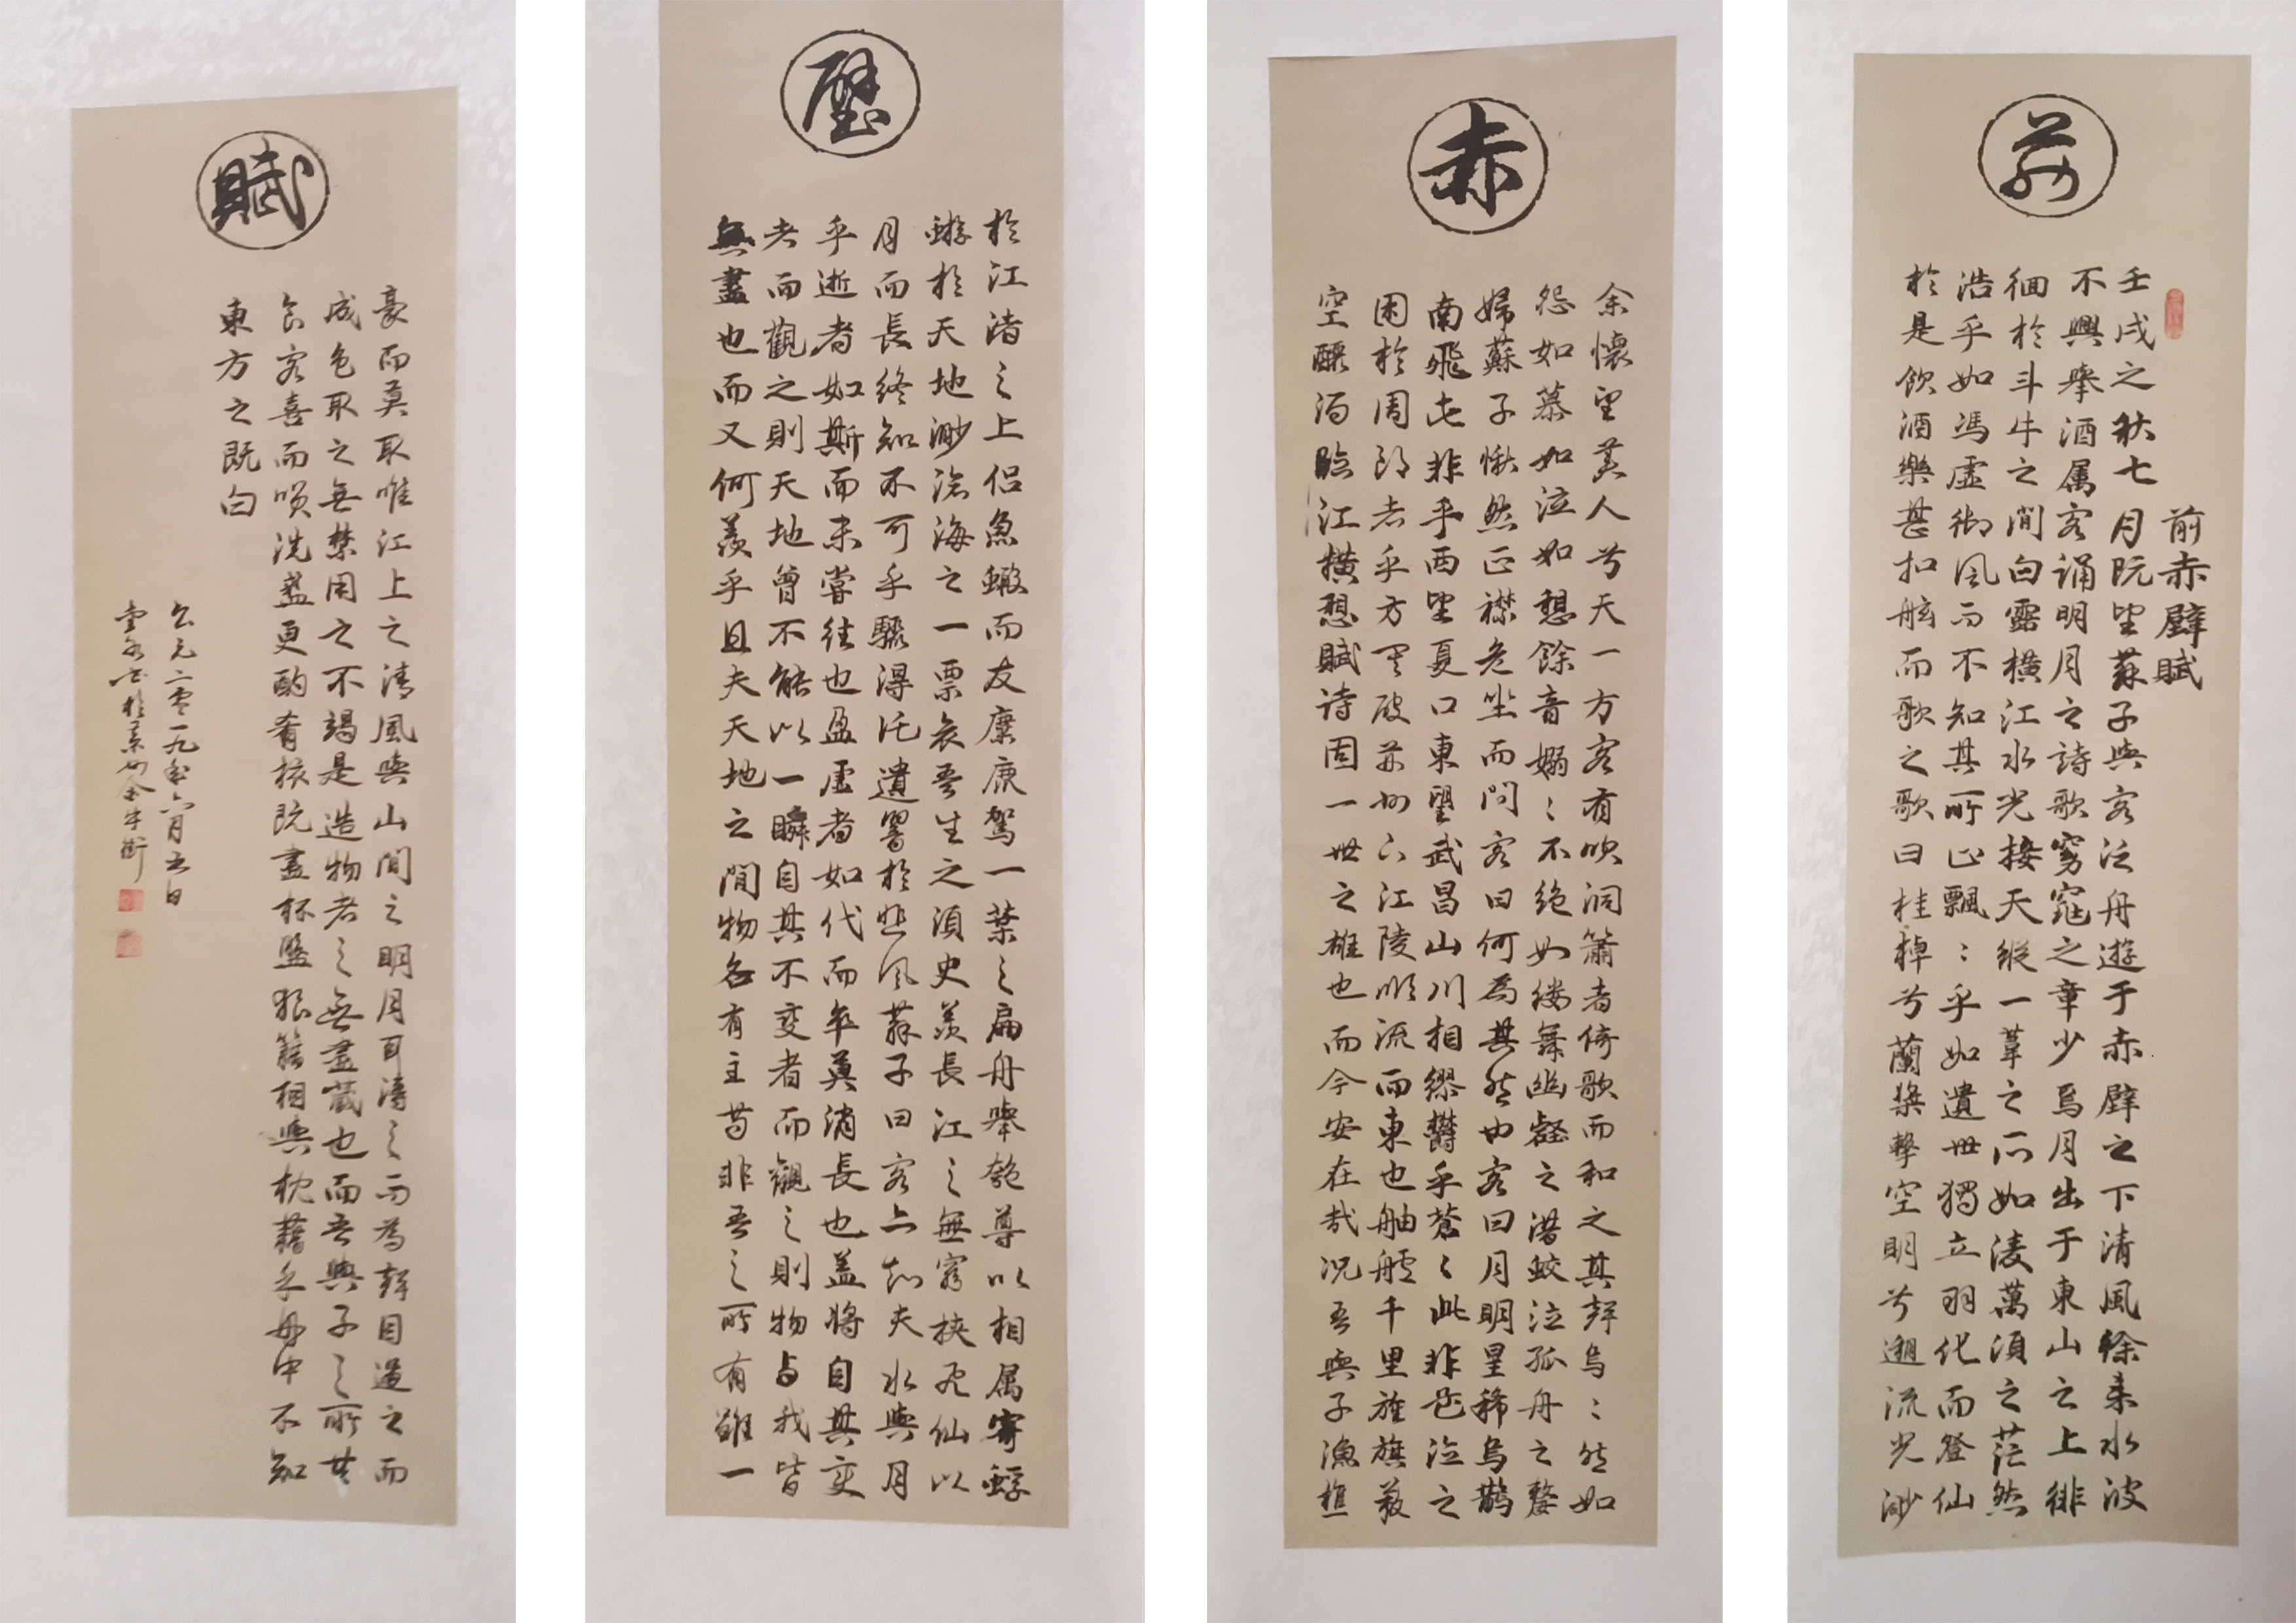 前
前赤壁賦
壬戌之秋七月既望蘇子與客泛舟遊于赤壁之下清風徐来水波
不興舉酒属客誦明月之詩歌窈窕之章少焉月出于東山之上徘
徊於斗牛之間白露横江水光接天縱一葦之所如凌萬頃之茫然
浩乎如馮虛御風而不知其所止飄〻乎如遺世獨立羽化而登仙
於是飲酒樂甚扣舷而歌之歌曰桂棹兮蘭槳擊空明兮遡流光渺
赤
余懷望美人兮天一方客有吹洞簫者倚歌而和之其聲烏〻然如
怨如慕如泣如愬餘音嫋〻不絕如縷舞幽壑之潜蛟泣孤舟之嫠
婦蘇子愀然正襟危坐而問客曰何為其然也客曰月明星稀烏鵲
南飛此非乎西望夏口東望武昌山川相繆鬱乎蒼〻此非之
困於周郎者乎方其破荊州下江陵順流而東也舳艫千里旌旗蔽
空釃酒臨江横愬賦詩固一世之雄也而今安在哉况吾與子漁樵
壁
於江渚之上侣魚蝦而友糜鹿駕一葉之扁舟舉匏尊以相属寄蜉
蝣於天地渺滄海之一粟哀吾生之須臾羨長江之無窮挾飛仙以
月而長終知不可乎驟得託遺響於悲風蘇子曰客亦知夫水與月
乎逝者如斯而未嘗往也盈虛者如代而卒莫消長也盖將自其變
者而觀之則天地曾不能以一瞬自其不變者而觀之則物与我皆
無盡也而又何羨乎且夫天地之間物各有主苟非吾之所有雖一
賦
豪而莫取惟江上之清風與山間之明月耳得之而為聲目遇之而
成色取之無禁用之不竭是造物者之無盡藏也而吾與子之所共
食客喜而笑洗盞更酌肴核既盡杯盤狼籍相與枕藉乎舟中不知
東方之既白
公元二零一九年六月五日
於金牛街